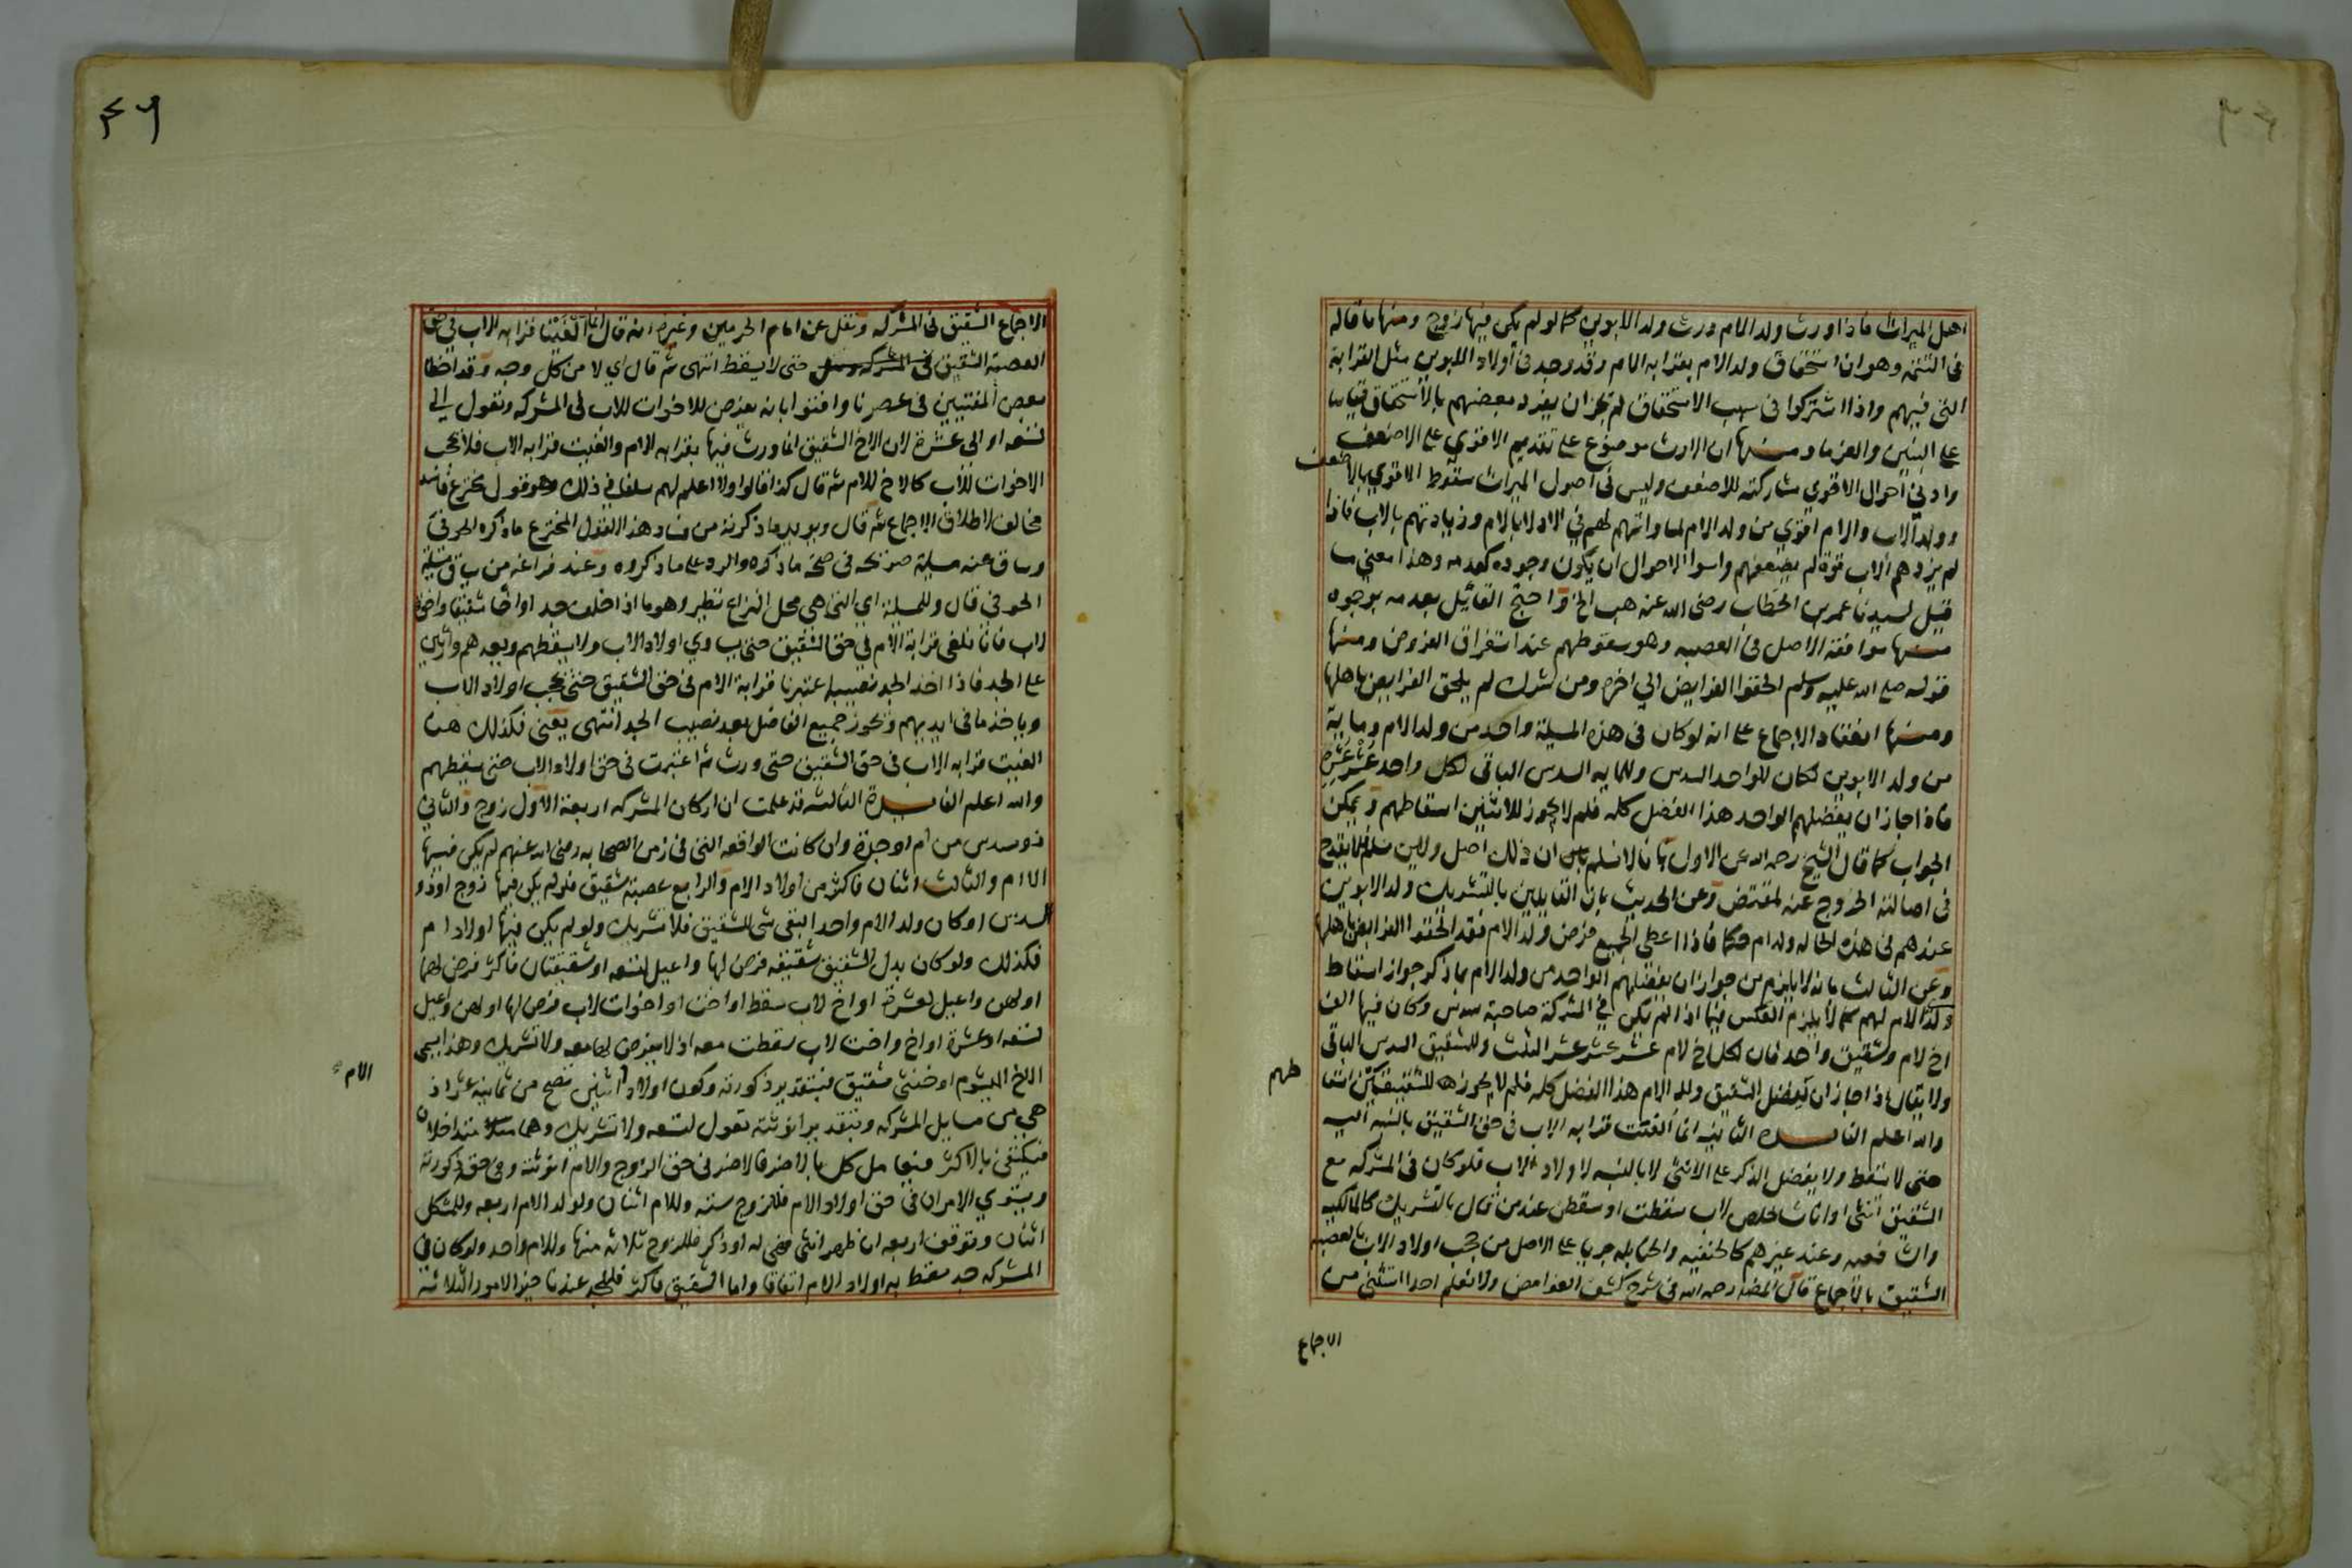 اهل الميراث فاذا ورث ولد الام ورث ولد الابوين كما لو لم يكن فيها زوج ومنها ما قاله
فى التتمه وهو ان استحقاق ولد الام بقرابه الام وقد وجد فى اولاد الابوين مثل القرابة
التى فيهم واذا اشتركوا فى سبب الاستحقاق لم يجز ان ينفرد بعضهم بالاستحقاق قياسا
على البنين والغرما ومنها ان الارث موضوع على تقديم الاقوي على الاضعف
وادني احوال الاقوي مشاركته للاضعف وليس فى اصول الميراث سقوط الاقوي بالاضعف
وولد الاب والام اقوي من ولد الام لمساواتهم لهم في الادلا بالام وزيادتهم بالاب فاذا
لم يزدهم الاب قوة لم يضعفهم واسوا الاحوال ان يكون وجوده كعدمه وهذا معنى ما
قيل لسيدنا عمر بن الخطاب رضى الله عنه هب الخ واحتج القائل بعدمه بوجوه
منها موافقة الاصل فى العصبه وهو سقوطهم عند استغراق الفروض ومنها
قوله صلى الله عليه وسلم الحقوا الفرايض الي اخره ومن شرك لم يلحق الفرايض باهلها
ومنها انعقاد الاجماع على انه لو كان فى هذه المسيلة واحد من ولد الام وماية
من ولد الابوين لكان للواحد السدس وللمايه السدس الباقى لكل واحد عشر عشره
فاذا جاز ان يفضلهم الواحد هذا الفضل كله فلم لا يجوز للاثنين اسقاطهم ويمكن
الجواب كما قال الشيخ رحمه الله عن الاول بانا لا نسلم ان ذلك اصل ولين سلم فلا يقدح
فى اصالته الخروج عنه لمقتض وعن الحديث بان القايلين بالتشريك ولد الابوين
عندهم فى هذه الحاله ولد ام حكما فاذا اعطي الجميع فرض ولد الام فقد الحقوا الفرايض باهلها
وعن الثالث بانه لا يلزم من جواز ان يفضلهم الواحد من ولد الام بما ذكر جواز اسقاط
ولد الام لهم كما لا يلزم العكس فيما اذا لم يكن في المشركة صاحبة سدس وكان فيها الف
اخ لام وشقيق واحد فان لكل اخ لام عشر عشر عشر الثلث وللشقيق السدس الباقى
ولا يقال اذا جاز ان يفضل الشقيق ولد الام هذا الفضل كله فلم لا يجوز للشقيقين اسقا
طهم
والله اعلم الفايدة الثانيه انما الغيت قرابه الاب فى حق الشقيق بالنسبه اليه
حتى لا يسقط ولا يفضل الذكر على الانثى لا بالنسبه لاولاد الاب فلو كان فى المشركه مع
الشقيق انثى او اناث خلص لاب سقطت او سقطن عند من قال بالتشريك كالمالكيه
والشافعيه وعند غيرهم كالحنفيه والحنابله جريا على الاصل من حجب اولاد الاب بالعصبه
الشقيق بالاجماع قال المصنف رحمه الله فى شرح كشف الغوامض ولا نعلم احدا استثنى من
الاجماع
٤٦
الاجماع الشقيق فى المشركه ونقل عن امام الحرمين وغيره انه قال انا الغينا قرابه الاب في حق
العصبة الشقيق فى المشركه حتى لا يسقط انتهى ثم قال اي لا من كل وجه وقد اخطا
بعض المفتيين فى عصرنا وافتوا بانه يفرض للاخوات للاب فى المشركه وتعول الي
تسعه او الى عشرة لان الاخ الشقيق انما ورث فيها بقرابه الام والغيت قرابه الاب فلا يحجب
الاخوات للاب كالاخ للام ثم قال كذا قالوا ولا اعلم لهم سلفا في ذلك وهو قول مخترع فاسد
مخالف لاطلاق الاجماع ثم قال ويويد ما ذكرته من فساد هذا القول المخترع ما ذكره الحوفى
وساق عنه مسيلة صريحه فى صحة ما ذكره والرد على ما ذكروه وعند فراغه من سياق مسيلة
الحوفي قال وللمسيلة اي التى هى محل النزاع نظير وهو ما اذا خلف جدا واخا شقيقا واخوة
لاب فانا نلغى قرابة الام في حق الشقيق حتى يساوي اولاد الاب ولا يسقطهم ويعدهم واثنين
على الجد فاذا اخذ الجد نصيبه اعتبرنا قرابة الام فى حق الشقيق حتى يحجب اولاد الاب
وياخذ ما فى ايديهم ويحوز جميع الفاضل بعد نصيب الجد انتهى يعنى فكذلك هنا
الغيت قرابه الاب فى حق الشقيق حتى ورث ثم اعتبرت فى حق اولاد الاب حتى يسقطهم
والله اعلم الفايدة الثالثه قد علمت ان اركان المشركه اربعة الاول زوج والثاني
ذو سدس من ام او جدة وان كانت الواقعه التى فى زمن الصحابه رضى الله عنهم لم يكن فيها
الا ام والثالث اثنان فاكثر من اولاد الام والرابع عصبة شقيق فلو لم يكن فيها زوج او ذو
السدس او كان ولد الام واحدا لبقى شى للشقيق فلا تشريك ولو لم يكن فيها اولاد ام
فكذلك ولو كان بدل الشقيق شقيقه فرض لها واعيل لتسعه او شقيقتان فاكثر فرض لهما
او لهن واعيل لعشرة او اخ لاب سقط او اخت او اخوات لاب فرض لها او لهن واعيل
لتسعه او عشرة او اخ واخت لاب سقطت معه اذ لا يفرض لها معه ولا تشريك وهذا يسمى
الاخ الميشوم او خنثى شقيق فبتقدير ذكورته وكون اولاد الام اثنين تصح من ثمانيه عشر اذ
هى من مسايل المشركه وبتقدير انوثته تعول لتسعه ولا تشريك وهما متداخلان
فيكتفى بالاكثر فيعامل كل بالاضر فالاضر فى حق الزوج والام انوثته وفى حقه ذكورته
ويستوي الامران فى حق اولاد الام فللزوج سته وللام اثنان ولولد الام اربعه وللمشكل
اثنان ويوقف اربعه ان ظهر انثى فهى له او ذكر فللزوج ثلاثه منها وللام واحد ولو كان فى
المشركه جد سقط به اولاد الام اتفاقا واما الشقيق فاكثر فللجد عندنا خير الامور الثلاثه